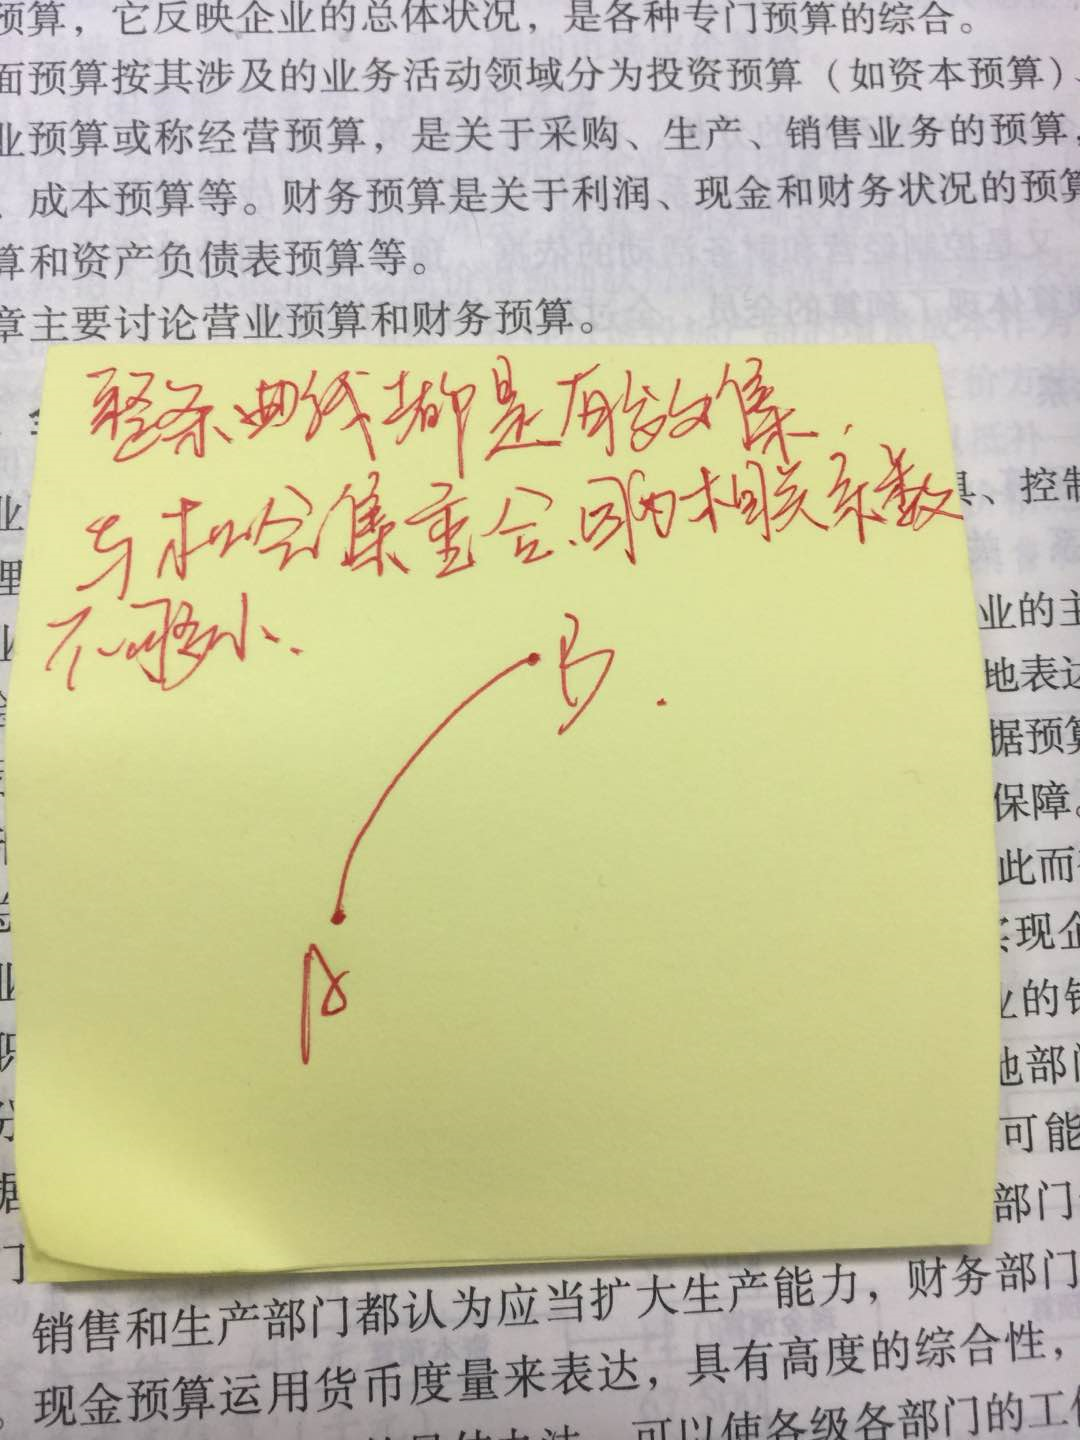 预算，它反映企业的总体状况，是各种专门预算的综合。
面预算按其涉及的业务活动领域分为投资预算（如资本预算）、
业预算或称经营预算，是关于采购、生产、销售业务的预算，
、成本预算等。财务预算是关于利润、现金和财务状况的预算
算和资产负债表预算等。
章主要讨论营业预算和财务预算。
整条曲线都是有效集，
与机会集重合，因为相关系数
不够小、
B
A
具、控制
业的主
地表达
据预算
保障。
此而
实现企
业的销
他部门
可能
部门
销售和生产部门都认为应当扩大生产能力，财务部门
现金预算运用货币度量来表达，具有高度的综合性，
可以使各级各部门的工作